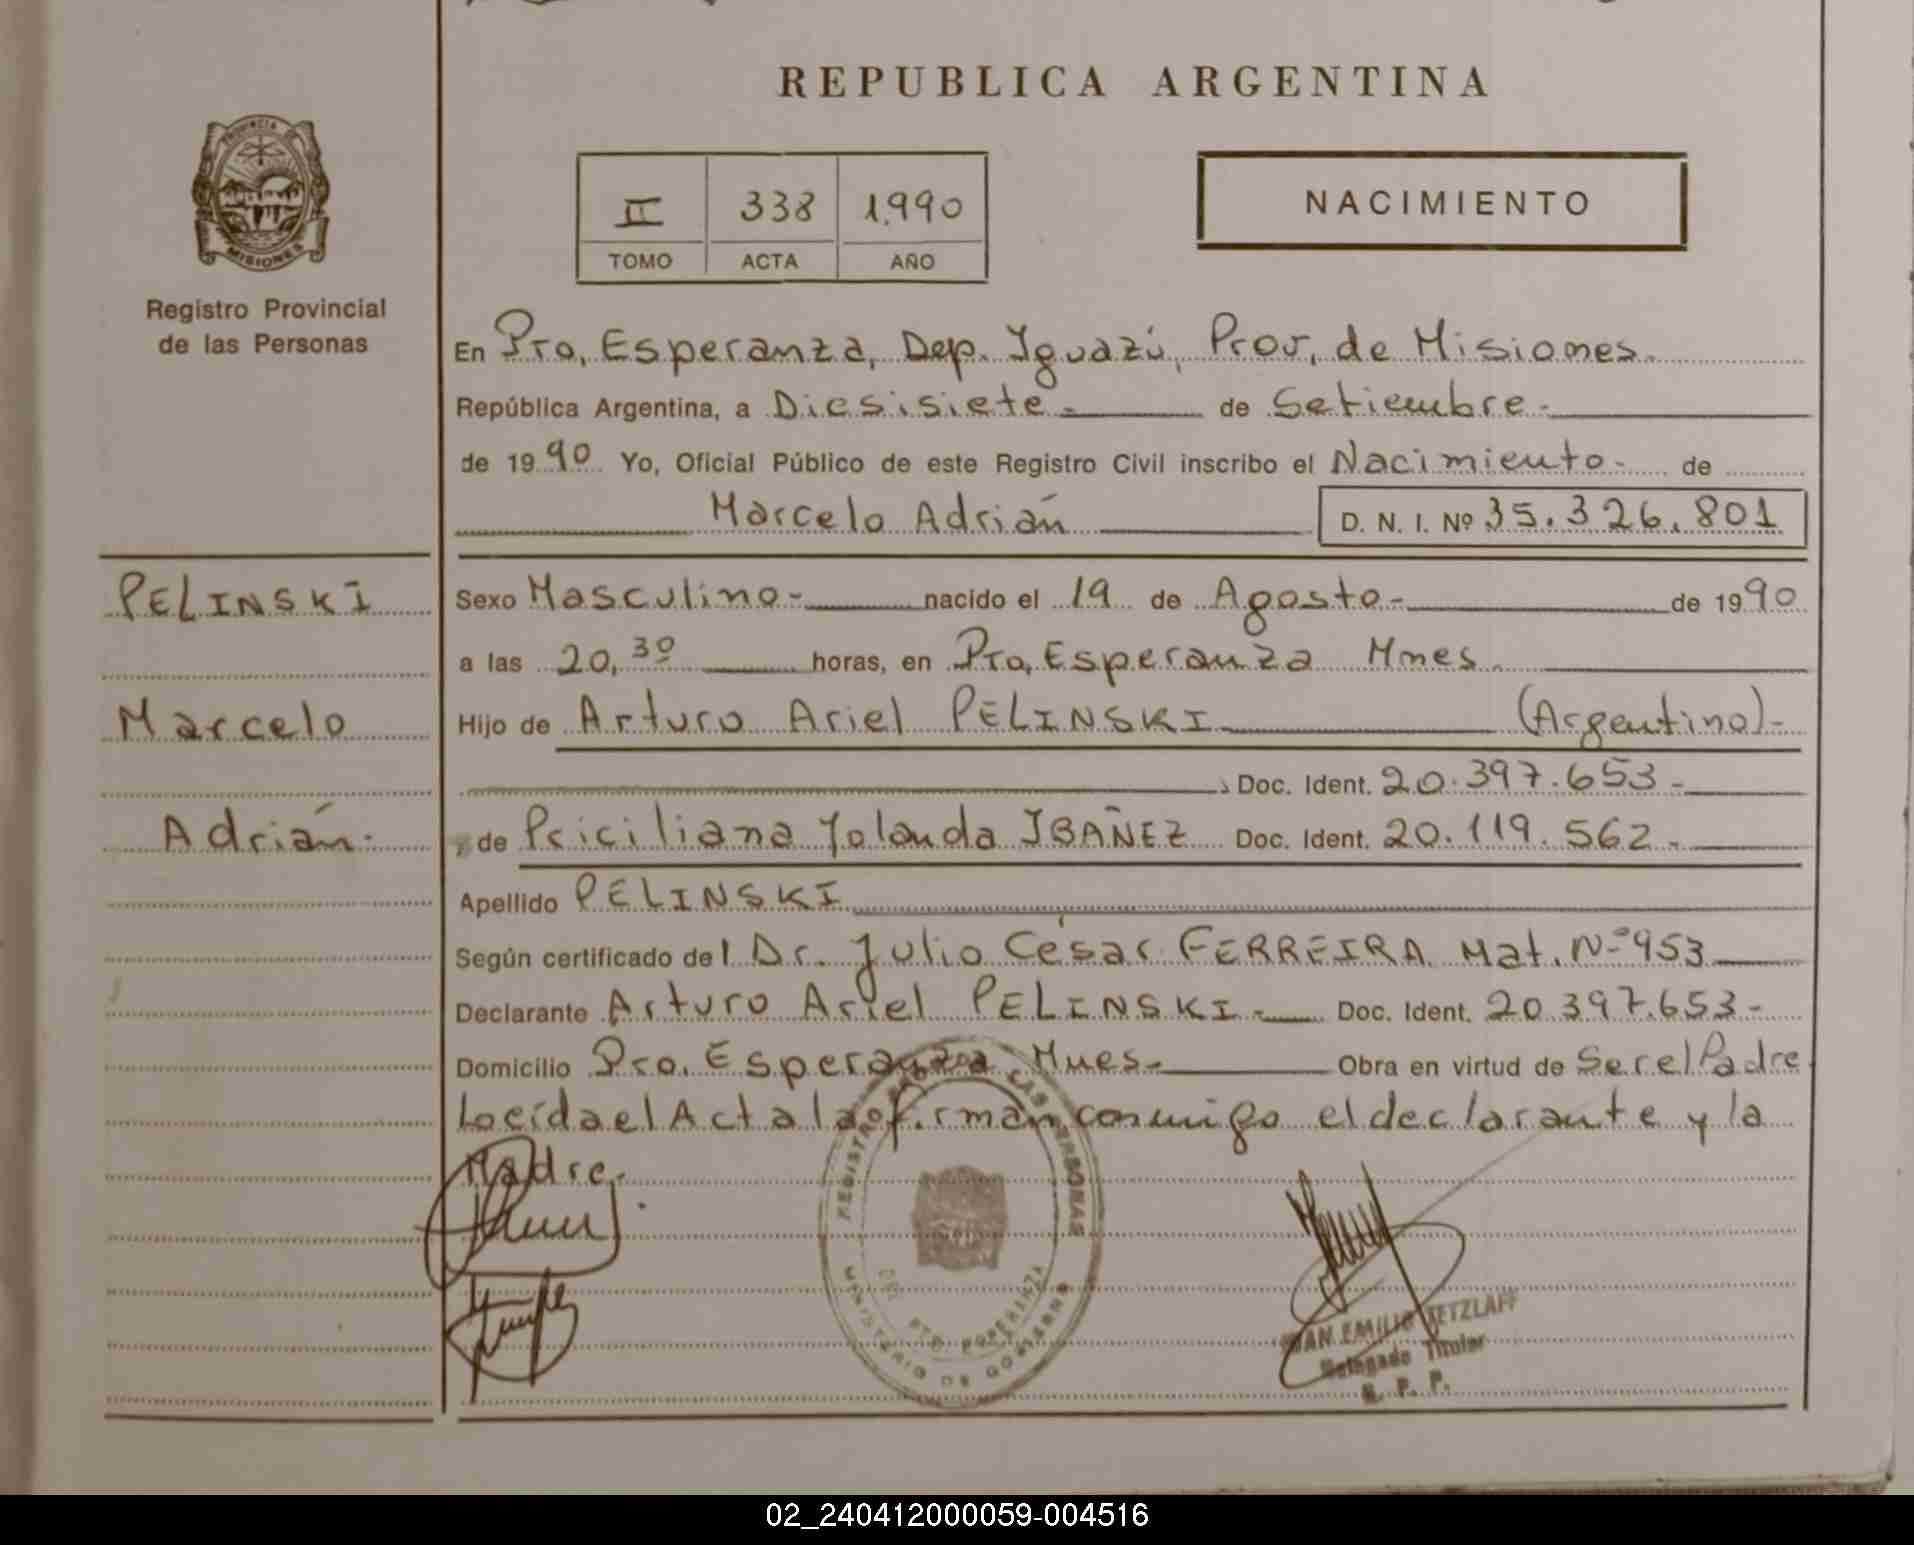 REPUBLICA ARGENTINA
PROVINCIA DE
MISIONES
Registro Provincial
de las Personas
II 338 1.990
TOMO ACTA AÑO
NACIMIENTO
En Pto, Esperanza, Dep. Iguazú, Prov, de Misiones.
República Argentina, a Diesisiete.- de Setiembre.-
de 1990 Yo, Oficial Público de este Registro Civil inscribo el Nacimiento.- de
Marcelo Adrián D. N. I. Nº 35.326.801
PELINSKI
Marcelo
Adrián.
Sexo Masculino.- nacido el 19 de Agosto.- de 1990
a las 20,30 horas, en Pto, Esperanza Mnes.
Hijo de Arturo Ariel PELINSKI (Argentino).-
Doc. Ident. 20.397.653.-
y de Priciliana Yolanda IBAÑEZ Doc. Ident. 20.119.562.-
Apellido PELINSKI
Según certificado del Dr. Julio César FERREIRA Mat. Nº 953
Declarante Arturo Ariel PELINSKI.- Doc. Ident. 20.397.653.-
Domicilio Pto. Esperanza Mnes.- Obra en virtud de Ser el Padre
Leída el Acta la firman conmigo el declarante y la
Madre.-
REGISTRO LAS PERSONAS
PTO. ESPERANZA
MINISTERIO DE GOBIERNO
JUAN EMILIO TETZLAFF
Delegado Titular
R. P. P.
02_240412000059-004516